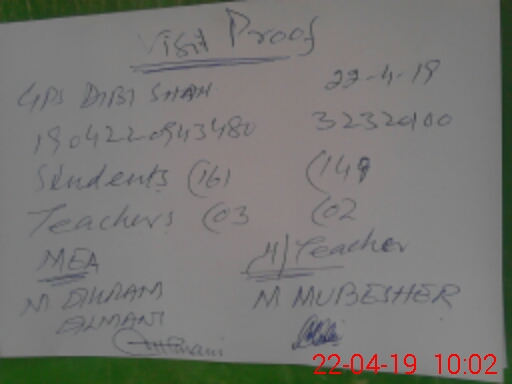 Visit Proof
GPS DIBI SHAH 22-4-19
190422-0943480 32320100
Students (161 (149
Teachers (03 (02
MEA H/Teacher
M IKRAM M MUBESHER
22-04-19 10:02